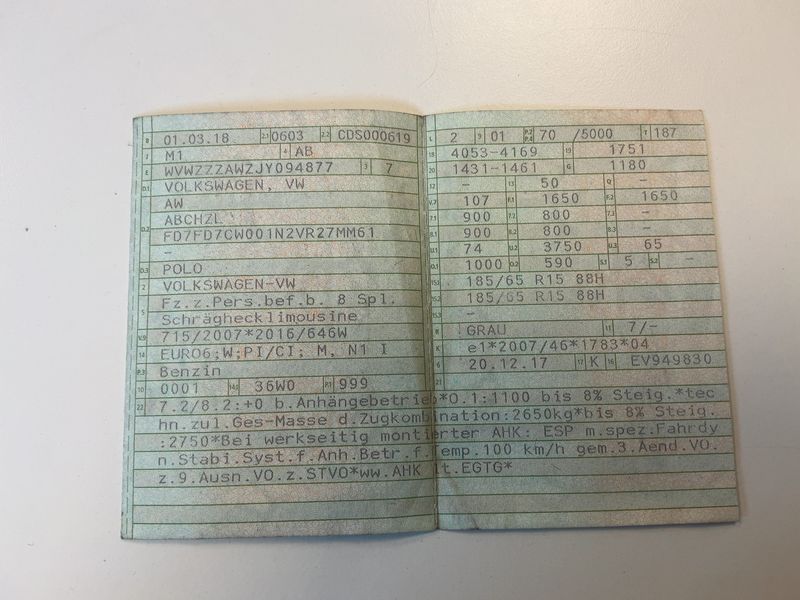 B 01.03.18 2.1 0603 2.2 CDS000619
J M1 4 AB
E WVWZZZAWZJY094877 3 7
D.1 VOLKSWAGEN, VW
AW
D.2 ABCHZL
FD7FD7CW001N2VR27MM61
-
D.3 POLO
2 VOLKSWAGEN-VW
5 Fz.z.Pers.bef.b. 8 Spl.
Schräghecklimousine
V.9 715/2007*2016/646W
14 EURO6;W;PI/CI; M, N1 I
P.3 Benzin
10 0001 14.1 36W0 P.1 999
L 2 9 01 P.2 P.4 70 /5000 T 187
18 4053-4169 19 1751
20 1431-1461 G 1180
12 - 13 50 Q -
V.7 107 F.1 1650 F.2 1650
7.1 900 7.2 800 7.3 -
8.1 900 8.2 800 8.3 -
U.1 74 U.2 3750 U.3 65
O.1 1000 O.2 590 S.1 5 S.2 -
15.1 185/65 R15 88H
15.2 185/65 R15 88H
15.3 -
R GRAU 11 7/-
K e1*2007/46*1783*04
6 20.12.17 17 K 16 EV949830
21
22 7.2/8.2:+0 b.Anhängebetrieb*O.1:1100 bis 8% Steig.*tec
hn.zul.Ges-Masse d.Zugkombination:2650kg*bis 8% Steig.
:2750*Bei werkseitig montierter AHK: ESP m.spez.Fahrdy
n.Stabi.Syst.f.Anh.Betr.f.Temp.100 km/h gem.3.Aend.VO.
z.9.Ausn.VO.z.STVO*ww.AHK lt.EGTG*